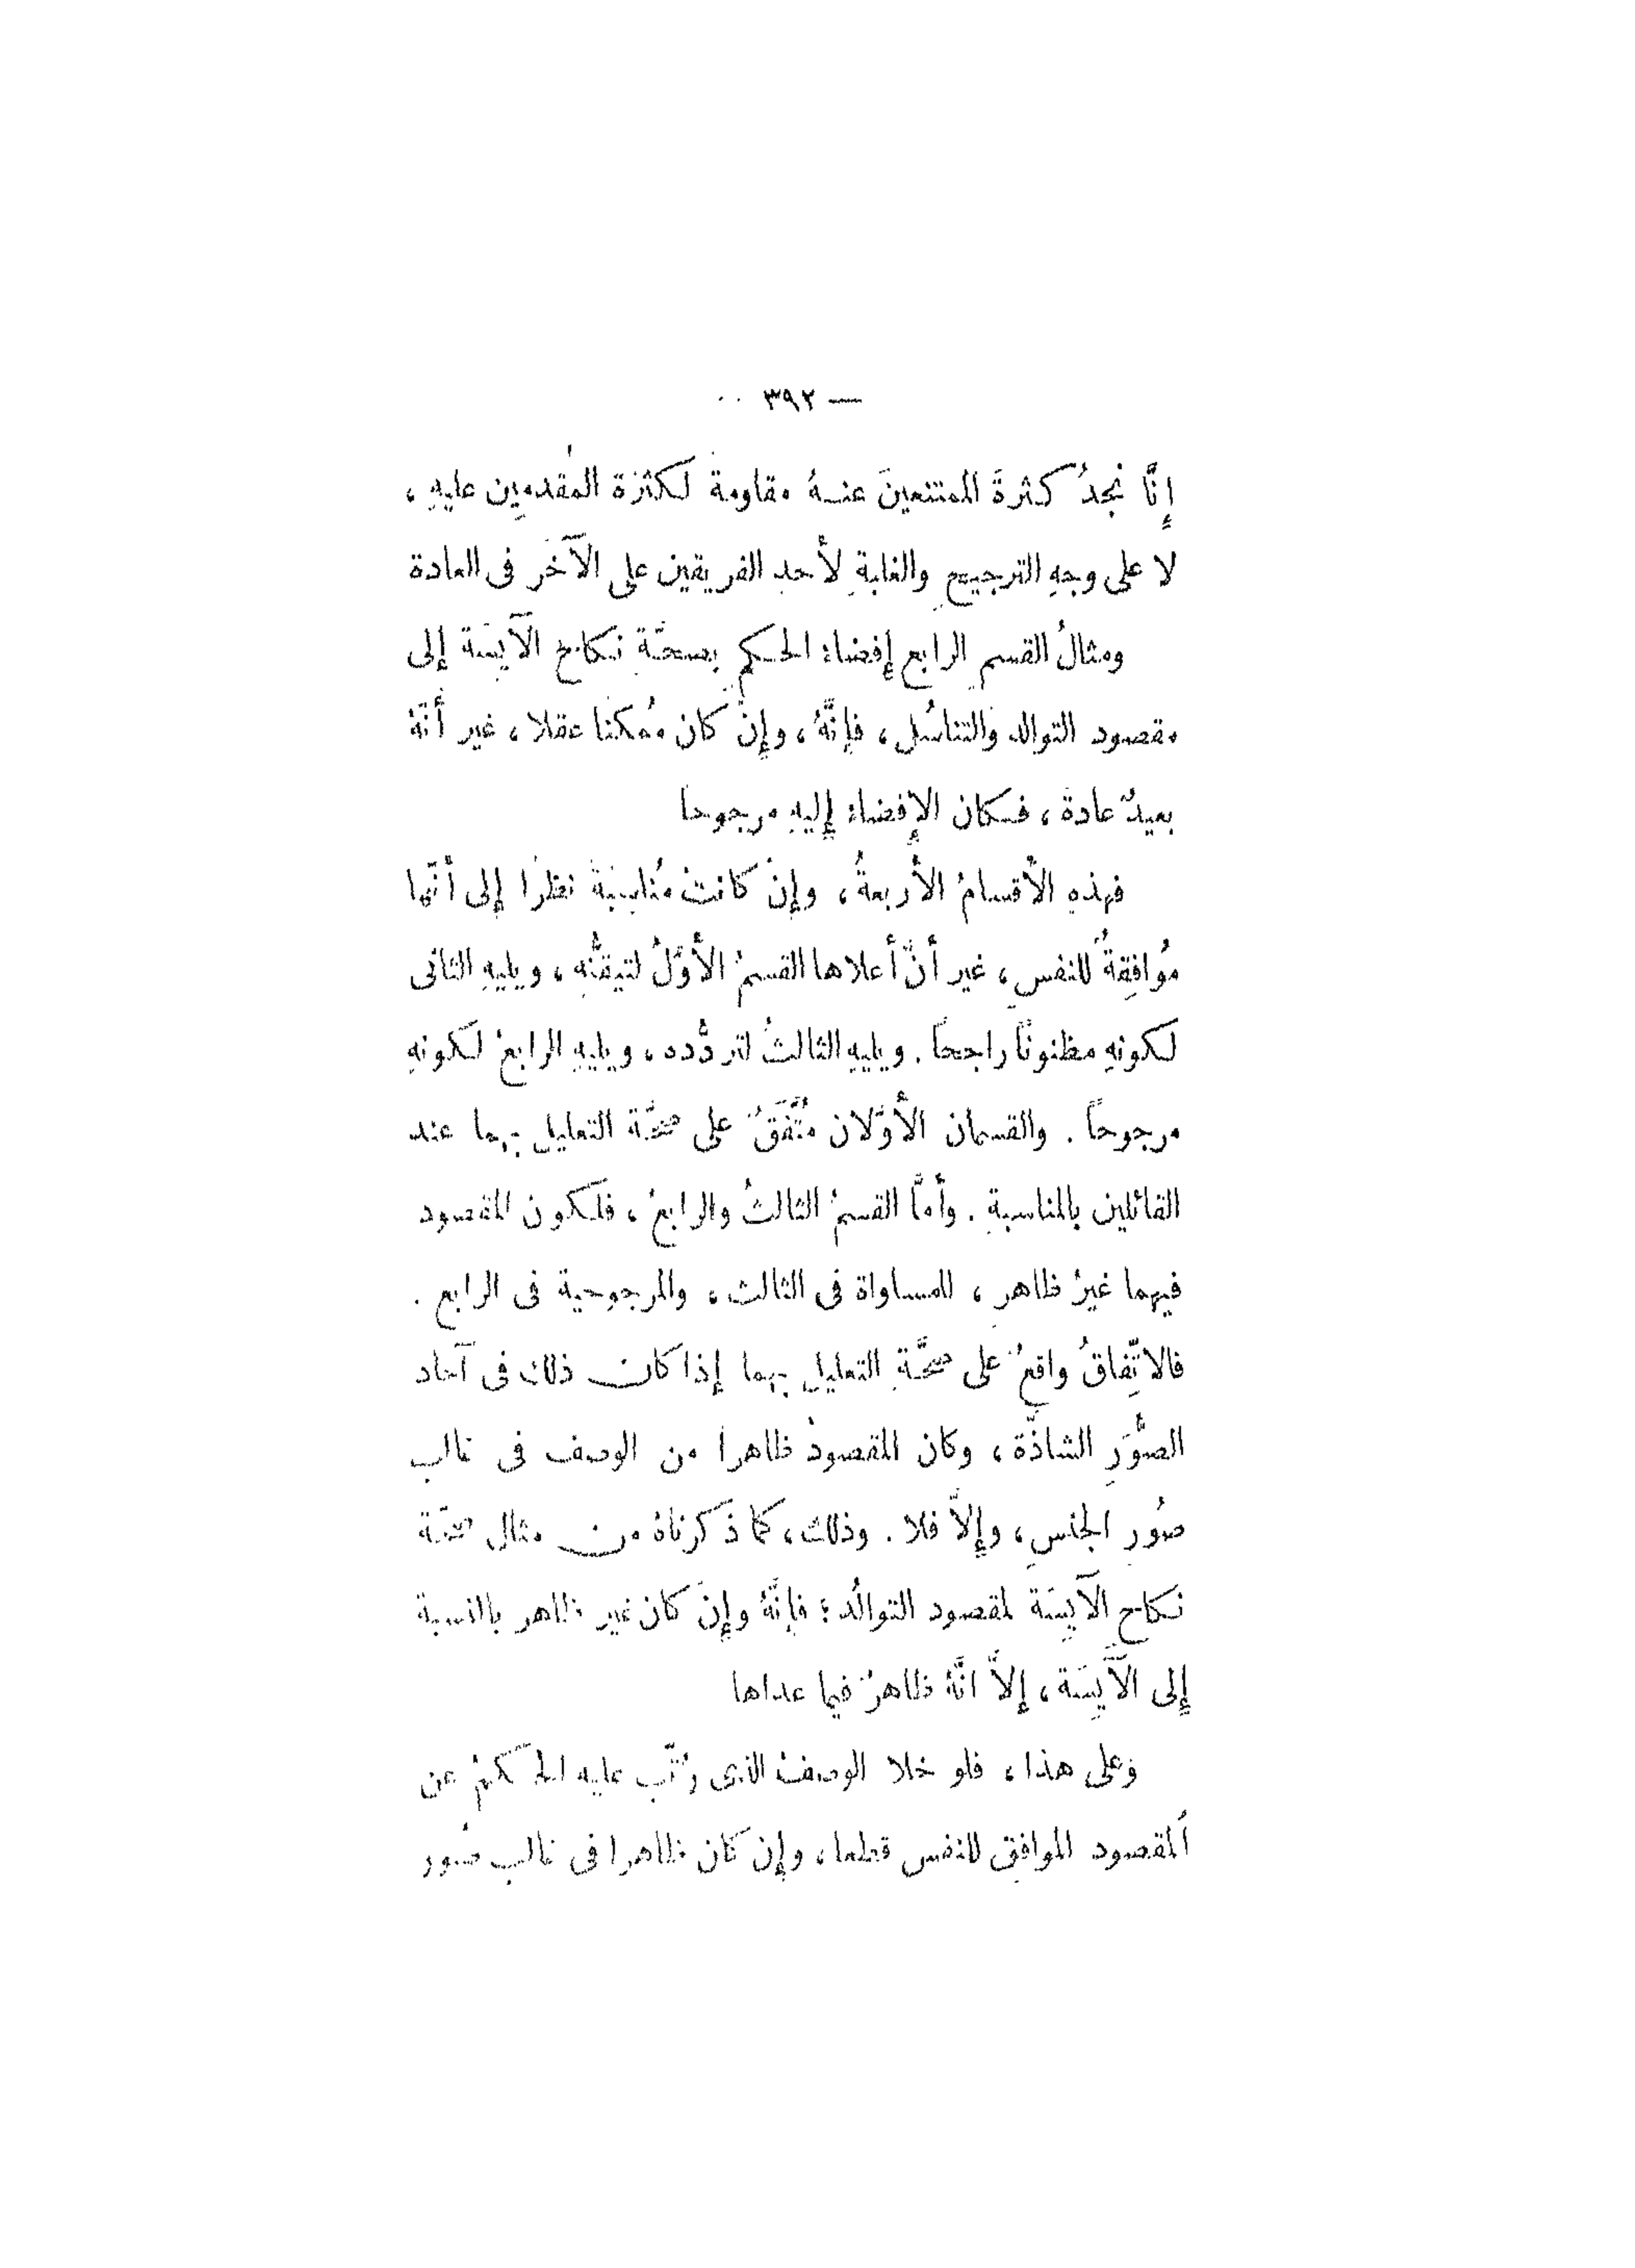 — ٣٩٢ ..
إِنَّا نجدُ كثرةَ الممتنعينَ عنهُ مقاومةً لكثرة المُقدمِين عليهِ ،
لا على وجهِ الترجيحِ والغلبةِ لأَحدِ الفريقينِ على الآخَر فى العادة
ومثالُ القسمِ الرابع إِفضاءُ الحكمِ بصحَّةِ نكاحِ الآيِسَة إِلى
مقصود التوالد والتناسُلِ ، فإِنَّهُ ، وإِنْ كان مُمكنا عقلا ، غير أَنَّهُ
بعيدٌ عادةً ، فكان الإِفضاءُ إِليهِ مرجوحا
فهذهِ الأَقسامُ الأَربعةُ ، وإِنْ كانتْ مُناسِبَةً نظرًا إِلى أَنَّها
مُوافِقةٌ للنفسِ ، غير أَنَّ أَعلاها القسمُ الأَوَّلُ لتيقُّنِهِ ، ويليهِ الثانى
لكونهِ مظنونًا راجحًا . ويليهِ الثالثُ لتردُّده ، ويليهِ الرابعُ لكونهِ
مرجوحًا . والقسمان الأَوَّلان مُتَّفَقٌ على صحَّة التعليلِ بهما عند
القائلين بالمناسبةِ . وأَمَّا القسمُ الثالثُ والرابعُ ، فلكون المقصود
فيهما غيرُ ظاهرٍ ، للمساواة فى الثالث ، والمرجوحية فى الرابع .
فالاتِّفاقُ واقعٌ على صحَّةِ التعليلِ بهما إذا كان ذلك فى آحاد
الصُّوَرِ الشاذَّة ، وكان المقصودُ ظاهرا من الوصف فى غالب
صُورِ الجنسِ ، وإِلاَّ فلا . وذلك ، كما ذكرناهُ من مثال صحَّة
نكاحِ الآيِسَة لمقصود التوالُد ؛ فإِنَّهُ وإِنْ كان غير ظاهر بالنسبة
إِلى الآيِسَة ، إِلاَّ انَّهُ ظاهرٌ فيما عداها
وَعلى هذا ، فلو خلا الوصفُ الذى رُتِّب عليه الحكمُ عن
المقصود الموافق للنفس قطعا ، وإِن كان ظاهرا فى غالب صُور